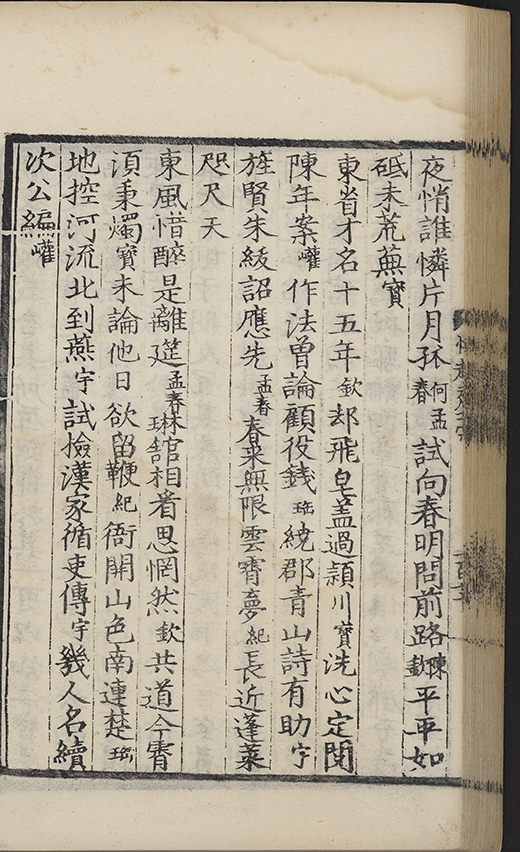 夜悄誰憐片月孤何孟春試向春明問前路陳欽平平如
砥未荒蕪寶
東省才名十五年欽却飛皂蓋過潁川寶洗心定閱
陳年案巏作法曾論顧役錢珤繞郡青山詩有助宇
旌賢朱紱詔應先孟春春來無限雲霄夢紀長近蓬萊
咫尺天
東風惜醉是離筵孟春琳館相看思惘然欽共道今宵
須秉燭寶未論他日欲留鞭紀衙開山色南連楚珤
地控河流北到燕宇試檢漢家循吏傳宇幾人名續
次公編巏